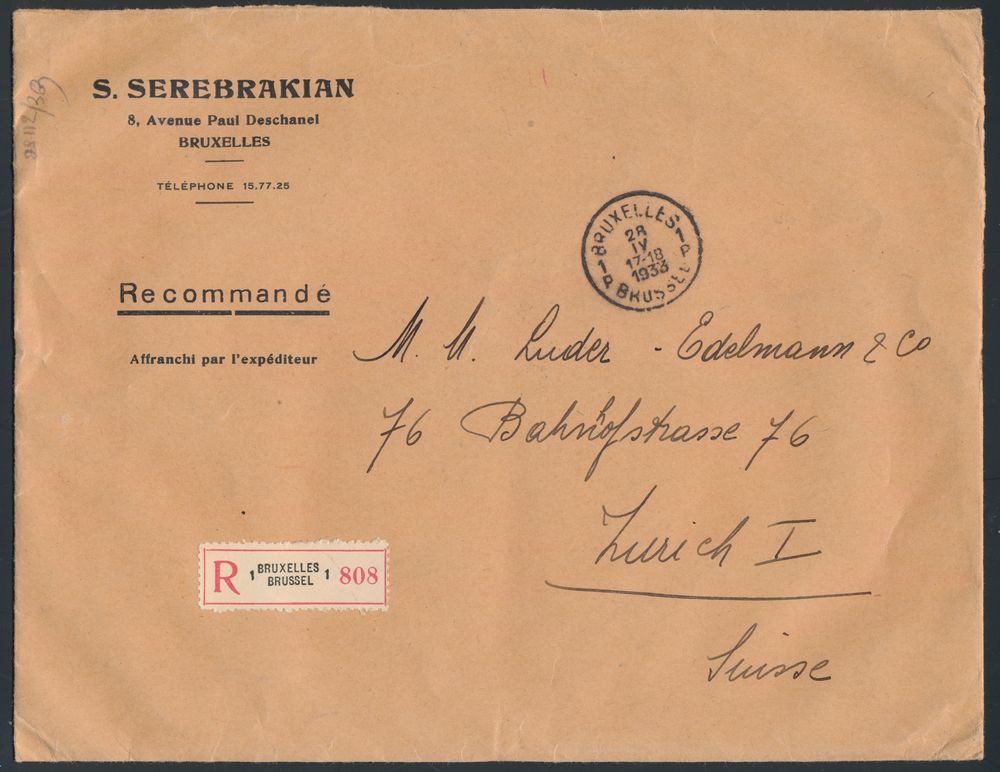 S. SEREBRAKIAN
8, Avenue Paul Deschanel
BRUXELLES
TÉLÉPHONE 15.77.25
BRUXELLES
28
IV
17-18
1933
1P BRUSSEL 1P
Recommandé
Affranchi par l'expéditeur
M. M. Luder - Edelmann & Co
76 Bahnhofstrasse 76
Zurich I
Suisse
R 1 BRUXELLES 1 808
BRUSSEL